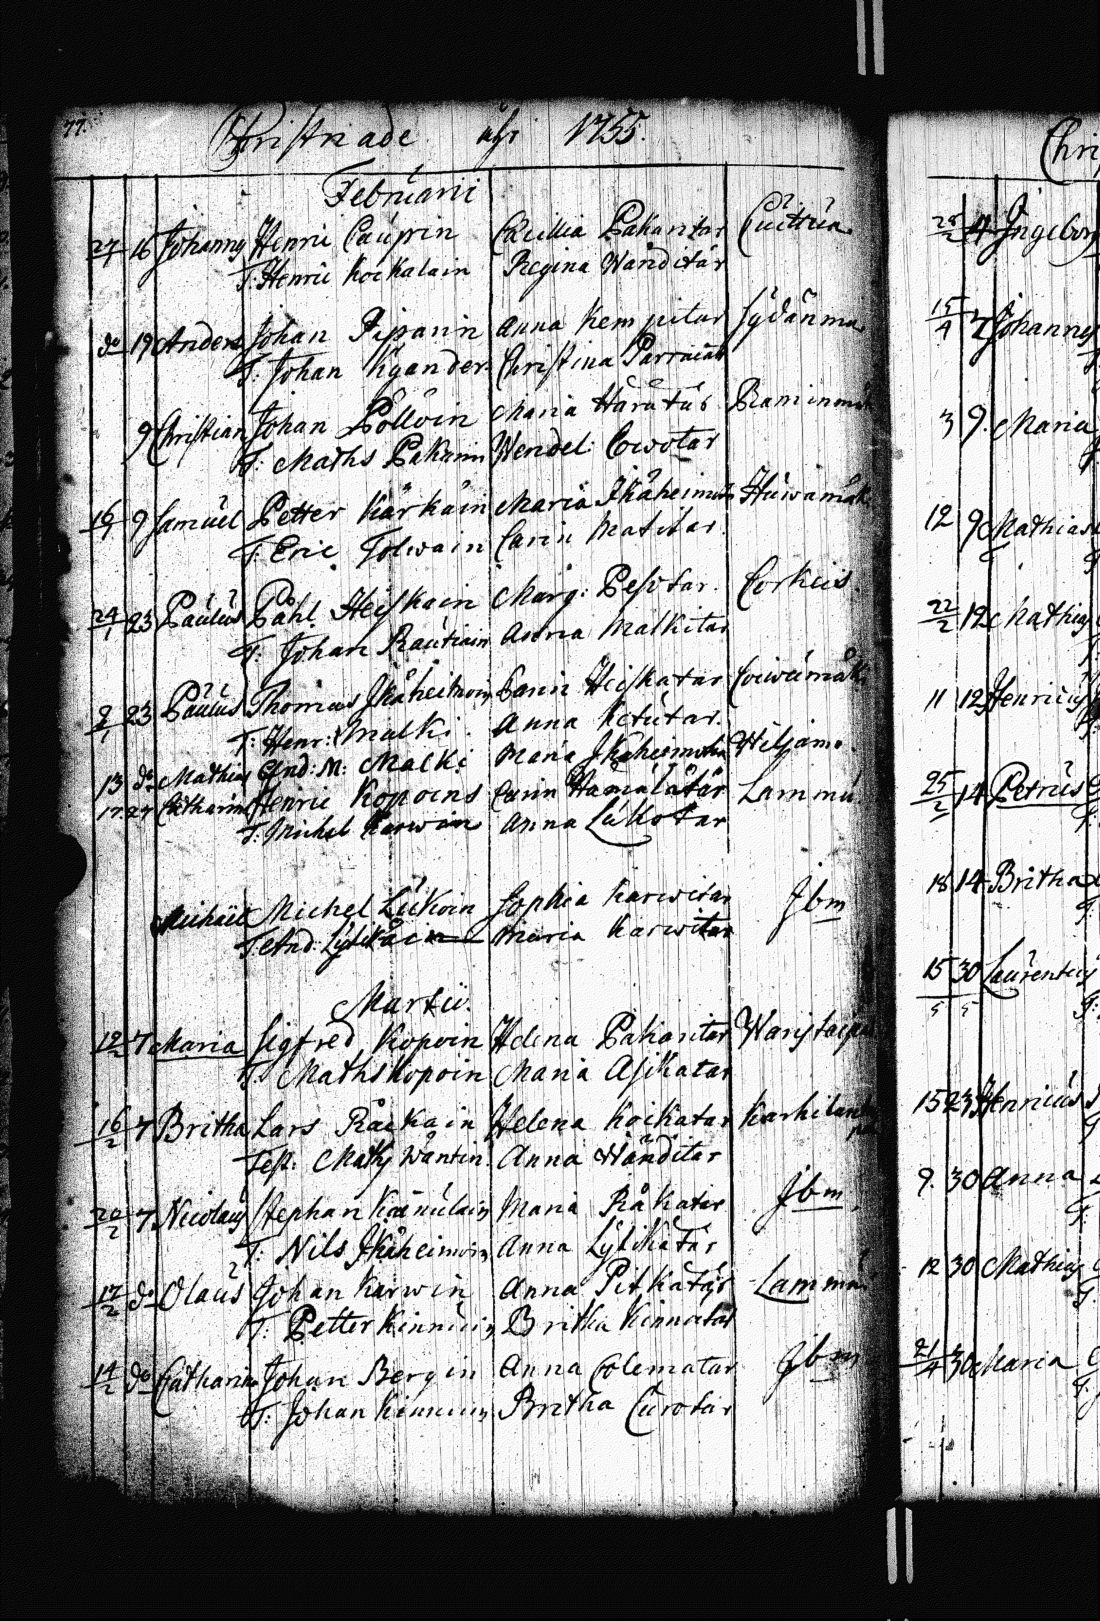 77.
Christnade åhr 1755.
Februarii
27/1 16 Johannes Henric Caupin Cæcillia Pakaritar Cuittua
T: Henric Kockalain Regina Wänditär
do 19 Anders Johan Pipanin Anna Kempitar Sydänma
T: Johan Kyander Christina Parraiati
9 Christian Johan Pöllöin Maria Harutar
T: Maths Pakarin Wendel: Cowotar
16/1 9 Samuel Petter Kärkäin Maria Ikäheimot
T: Eric Tolwain Carin Matitar
24/1 23 Paulus Påhl Heiskain Marg: Pesotar Corkeis
T: Johan Rautiain Anna Malkitar
2/1 23 Paulus Thomas Ikäheimoin Carin Heiskatar Coiwumäki
T: Henr: Malki Anna Ketutar
13 do Mathias And: M: Malki Maria Ikäheimotar Hiljamo
17 27 Catharin Henric Kopoens Carin Hämälätär Lammu
T: Michel Karwin Anna Lukotar
Michäel Michel Lukoin Sophia Karwitar Jbm
T: And: Lytikäin Maria Karwitar
Martii
12/2 7 Maria Sigfred Kopoin Helena Pakaritar
T: Maths Kopoin Maria Asikatar
16/2 7 Britha Lars Räikäin Helena Koikatar
Test: Maths Wäntin Anna Wänditar
20/2 7 Nicolaus Stephan Kainulain Maria Råkatar Jbm
T: Nils Ikäheimoin Anna Lytikätär
17/2 do Olaus Johan Karwin Anna Pitkätär Lammu
T: Petter Kinnuin Britha Kinnutar
14/2 do Catharina Johan Bergin Anna Colematar Jbm
T: Johan Kinnuin Britha Curotar
Chri
28/2 4 Ingebor
15/4 7 Johannes
3 9. Maria
12 9 Mathias
22/2 12 Mathias
11 12 Henricus
25/2 14 Petrus
18 14 Britha
15 30 Laurentius
15 23 Henricus
9. 30 Anna
12 30 Mathias
21/4 30 Maria